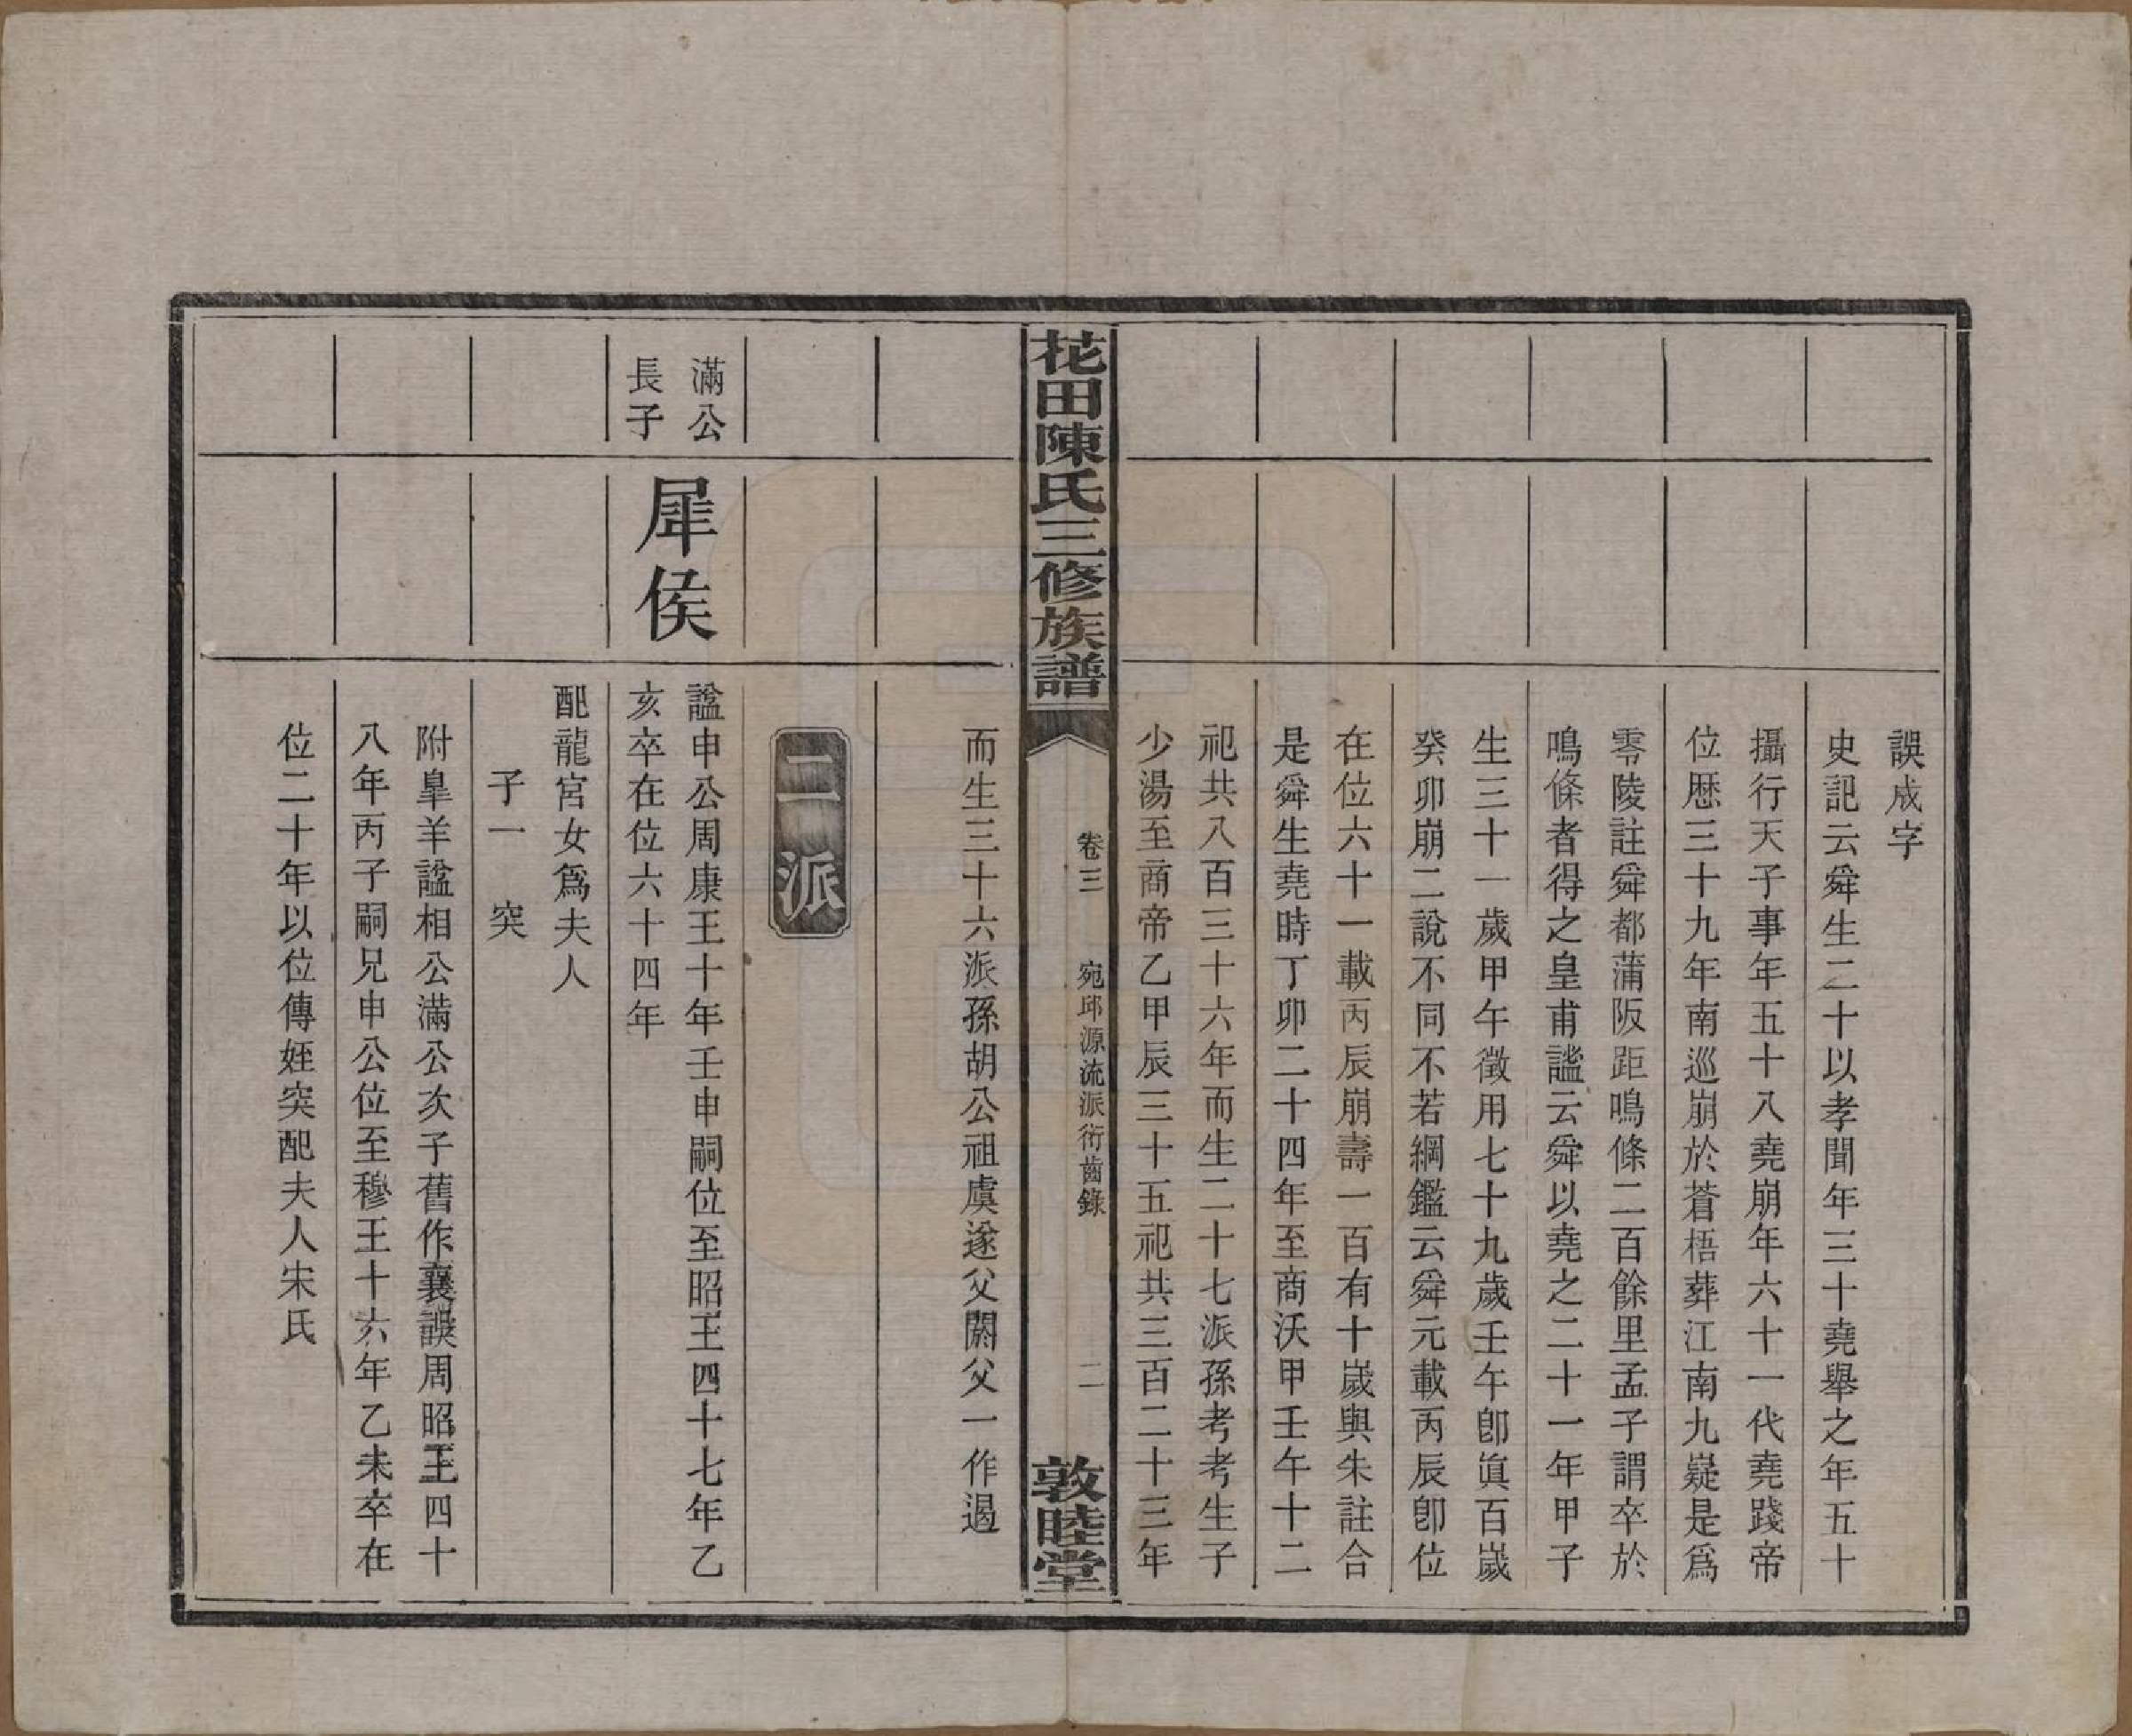 誤成字
史記云舜生二十以孝聞年三十堯舉之年五十
攝行天子事年五十八堯崩年六十一代堯踐帝
位歷三十九年南巡崩於蒼梧葬江南九嶷是爲
零陵註舜都蒲阪距鳴條二百餘里孟子謂卒於
鳴條者得之皇甫謐云舜以堯之二十一年甲子
生三十一歲甲午徵用七十九歲壬午卽眞百歲
癸卯崩二說不同不若綱鑑云舜元載丙辰卽位
在位六十一載丙辰崩壽一百有十歲與朱註合
是舜生堯時丁卯二十四年至商沃甲壬午十二
祀共八百三十六年而生二十七派孫考考生子
少湯至商帝乙甲辰三十五祀共三百二十三年
花田陳氏三修族譜
卷三
宛邱源流派衍齒錄
二
敦睦堂
而生三十六派孫胡公祖虞遂父閼父一作遏
二派
滿公
長子
犀侯
諡申公周康王十年壬申嗣位至昭王四十七年乙
亥卒在位六十四年
配龍宮女爲夫人
子一 突
附皐羊諡相公滿公次子舊作襄誤周昭王四十
八年丙子嗣兄申公位至穆王十六年乙未卒在
位二十年以位傳姪突配夫人宋氏